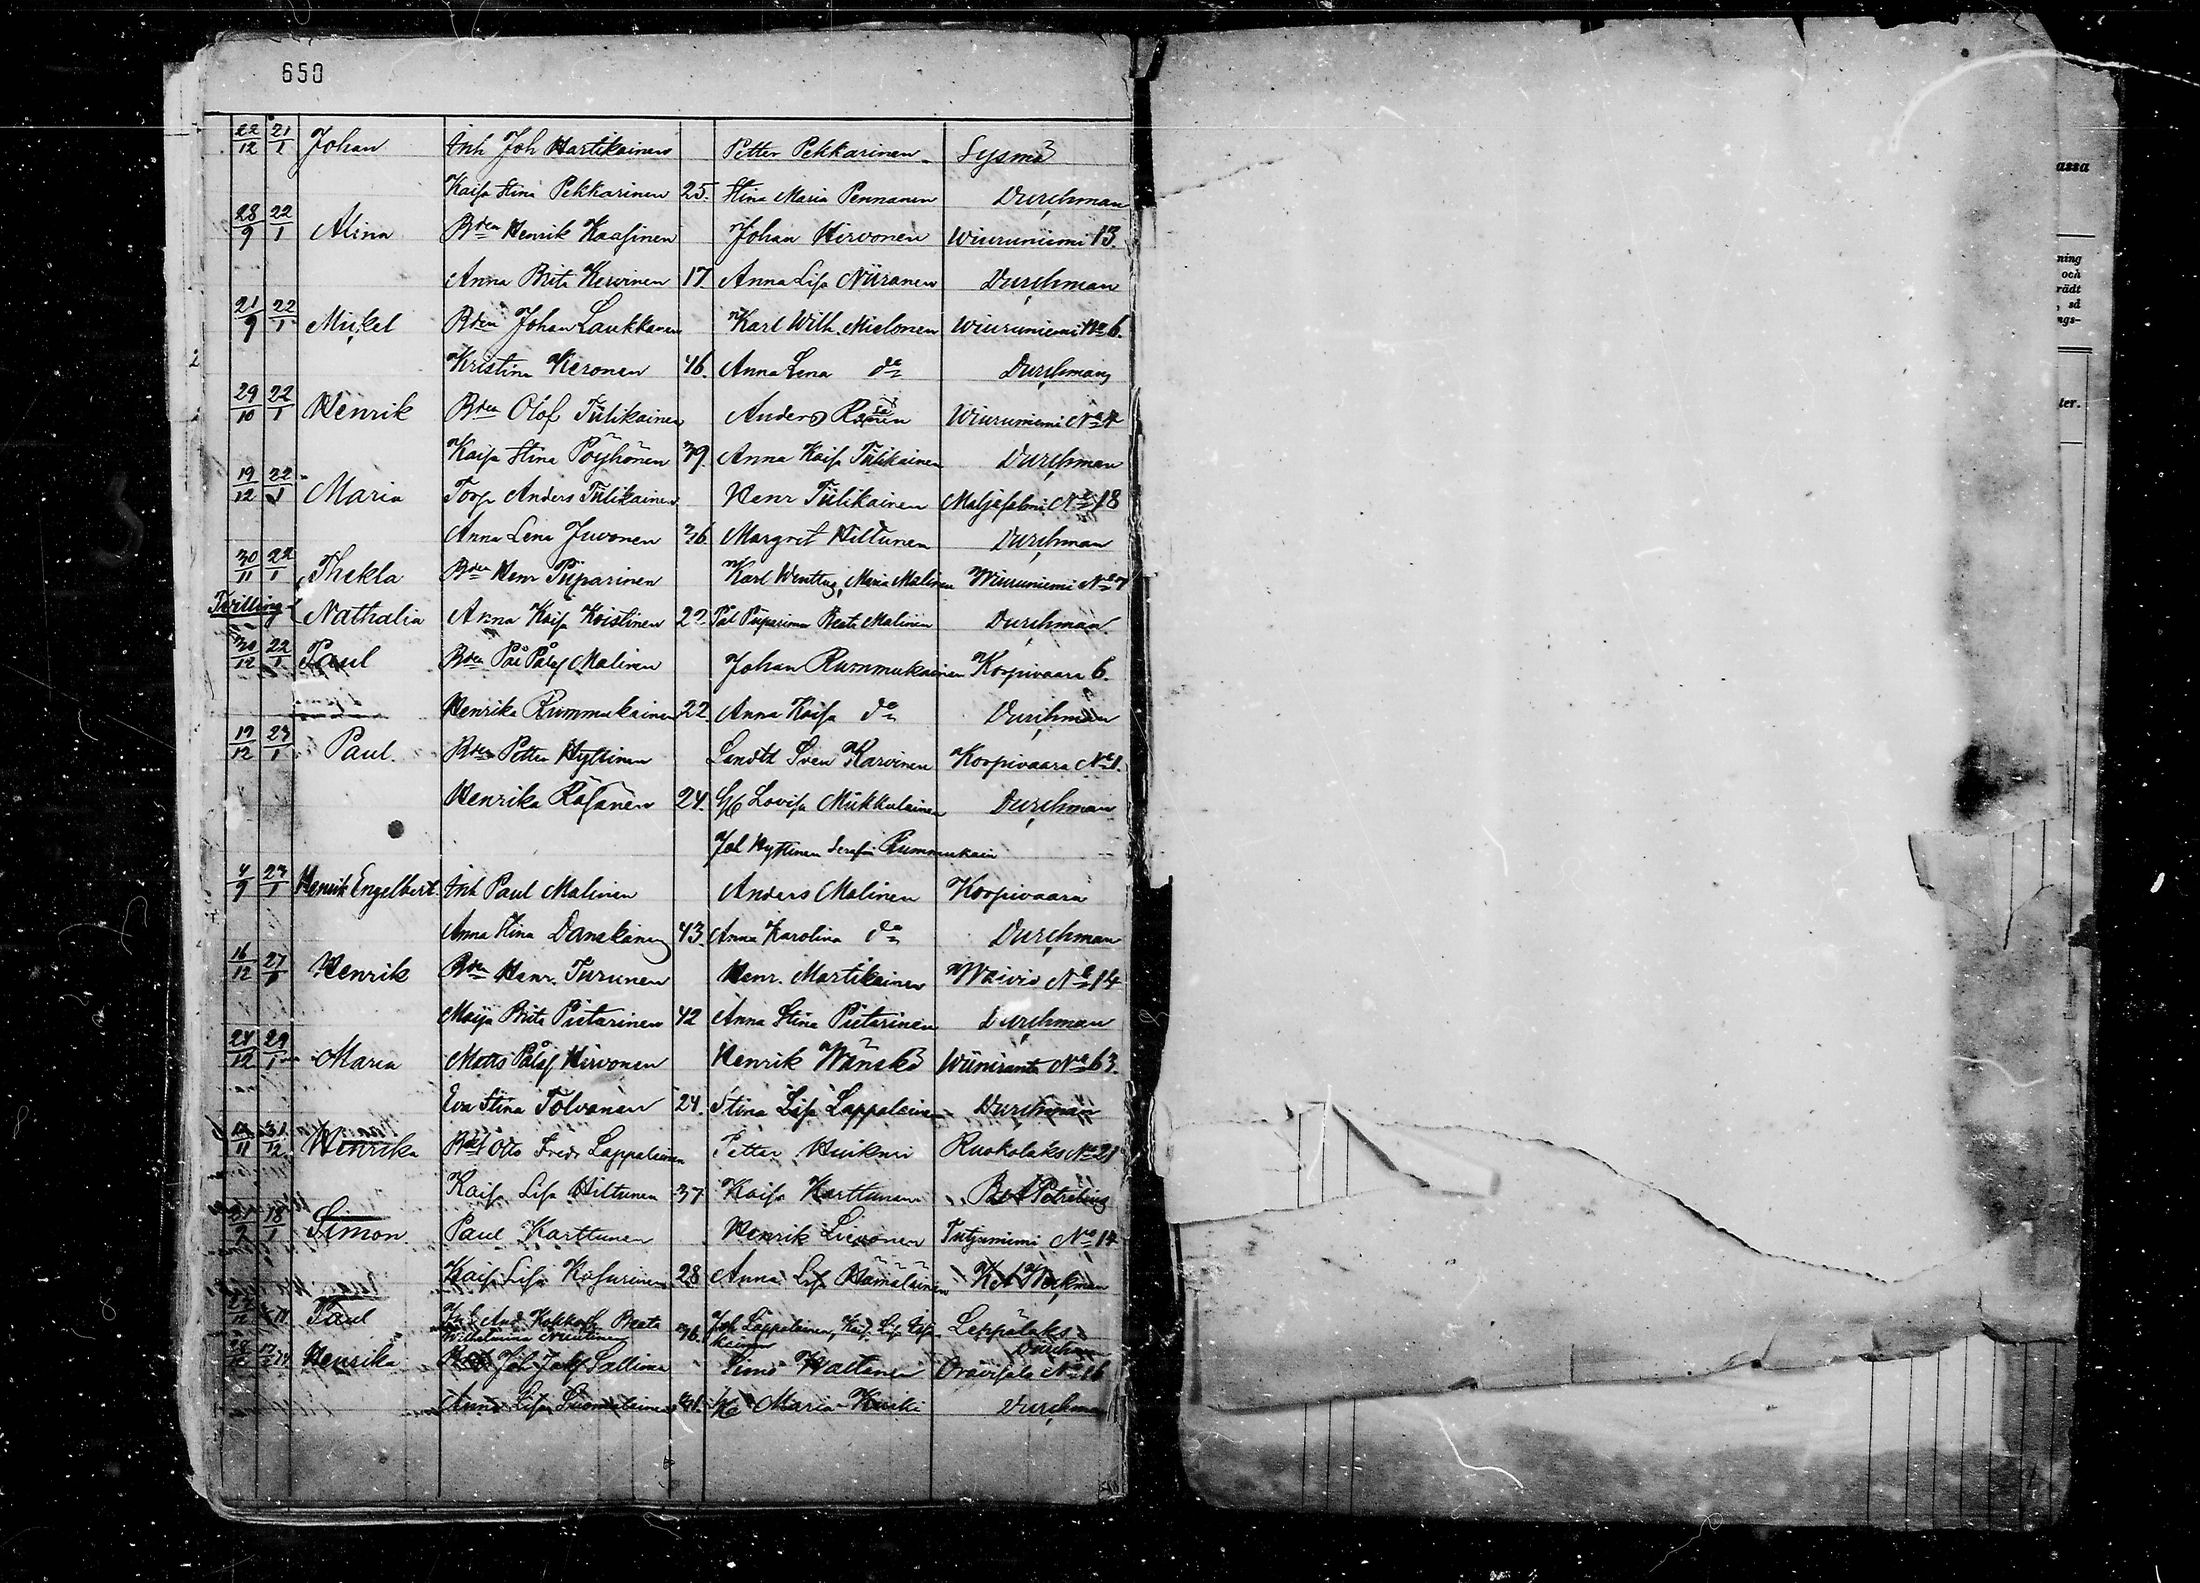 650
22/12 21/1 Johan Inh Joh Hartikainen Petter Pekkarinen Sysmä
Kaisa Stina Pekkarinen 25. Stina Maria Pennanen Durchman
28/9 22/1 Alina Bden Henrik Kaasinen Johan Hirvonen Wiuruniemi 13.
Anna Brita Kervinen 17. Anna Lisa Niiranen Durchman
21/9 22/1 Mickel Bden Johan Laukkanen Karl Wilh. Mielonen Wiuruniemi No 6.
Kristina Keronen 46. Anna Lena do Durchman
29/10 22/1 Henrik Bden Olof Tiilikainen Anders Wiuruniemi No 4
Kaisa Stina Pöyhönen 39. Anna Kaisa Tiilikainen Durchman
19/12 22/1 Maria Torp Anders Tiilikainen Henr Tiilikainen Maljasalmi No 18
Anna Lena Juvonen 36 Margret Hiltunen Durchman
30/11 22/1 Thekla Bden Henr Piiparinen Karl Maria Malinen Wiuruniemi No 7
Tvilling Nathalia Anna Kaisa Koistinen 22. Pål Piiparinen Beata Malinen Durchman
30/12 22/1 Paul Bden Pål Pålsf Malinen Johan Rummukainen Korpivaara 6.
Henrika Rummukainen 22. Anna Kaisa do Durchman
19/12 23/1 Paul. Bden Petter Hyttinen Sven Karvinen Korpivaara No 1.
Henrika Räsänen 24. H Lovisa Miikkulainen Durchman
Joh Hyttinen Serafia Rummukain
4/9 23/1 Henrik Engelbert Inh Paul Malinen Anders Malinen Korpivaara
Anna Stina Danskanen 43. Anna Karolina do Durchman
16/12 27/1 Henrik Bden Henr. Turunen Henr. Martikainen Waivio No 14
Maija Brita Pietarinen 42 Anna Stina Pietarinen Durchman
24/12 29/1 Maria Matts Pålsf Hirvonen Henrik Wänskä Wiiniranta No 63.
Eva Stina Tolvanen 24. Stina Lisa Lappalainen Durchman
31/12 Henrika Otto Fredr Lappalainen Petter Ruokolaks No 21
Kaisa Lisa Hiltunen 37 Kaisa Karttunen
21/9 18/1 Simon Paul Karttunen Henrik Lievonen Tutjuniemi No 14
Kaisa Lisa Kosunen 28 Anna Lisa Hämäläinen K A Weckman
Paul And Kokkoff Beata 36. Joh Lappalainen, Kais. Lis. Leppälaks
Wilhelmina Durchman
Henrika Joh Sallinen Simo Wattanen Oravisalo No 16
Anna Lisa 41. H Maria Kuski Durchman
assa
ning
och
rädt
, så
ngs-
ter.